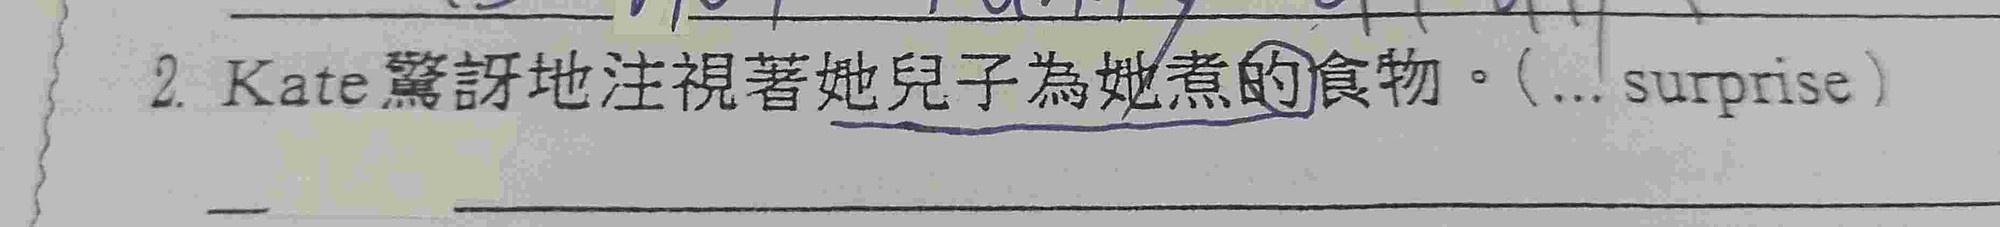 2. Kate驚訝地注視著她兒子為她煮的食物。(... surprise)